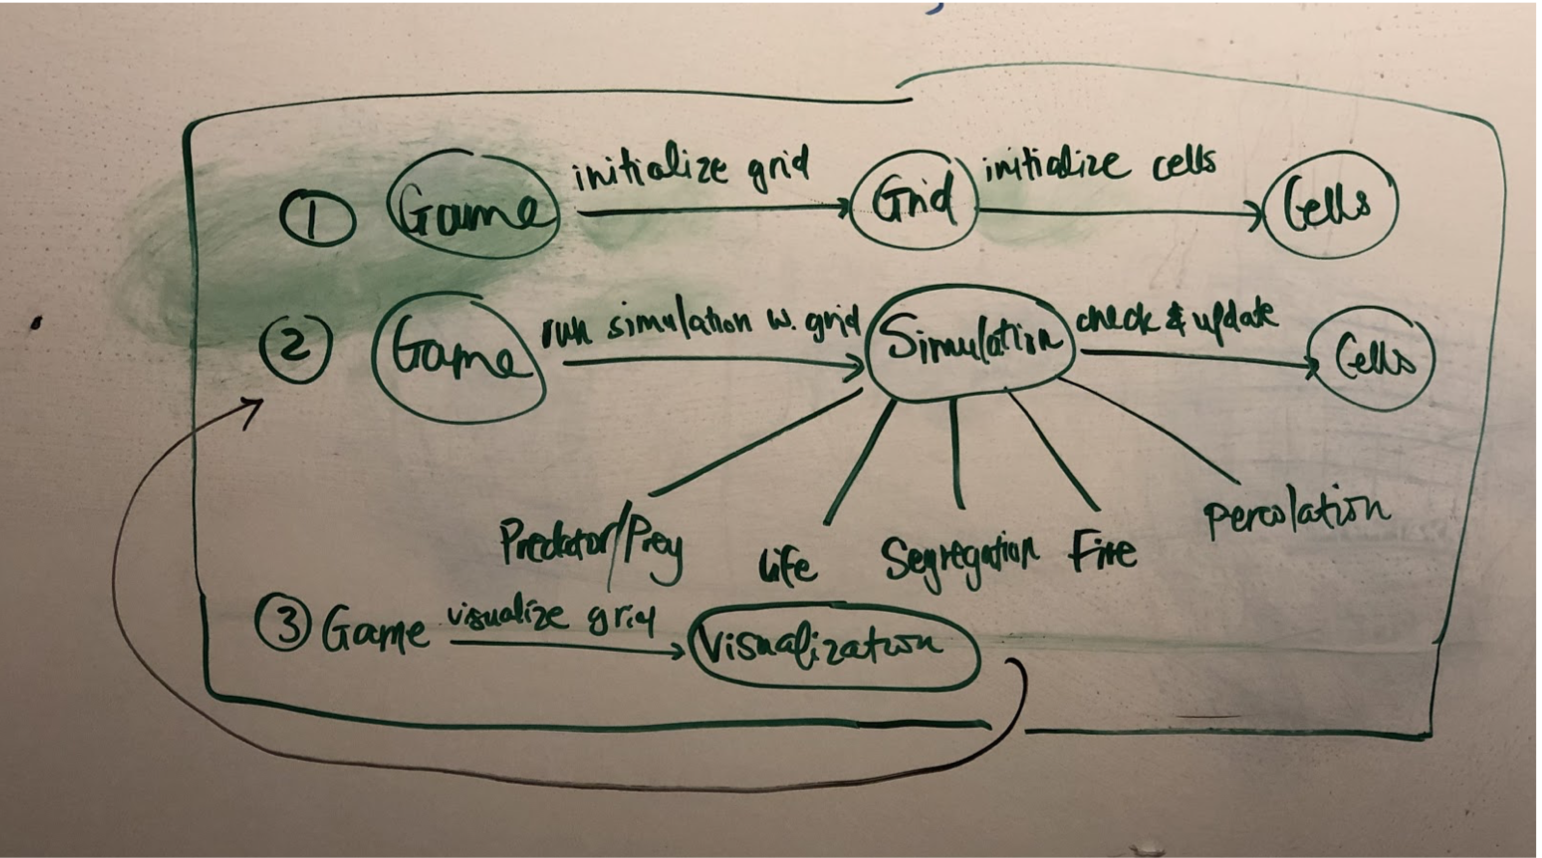 1 Game initialize grid Grid initialize cells Cells
2 Game run simulation w. grid Simulation check & update Cells
Predator/Prey Life Segregation Fire percolation
3 Game visualize grid Visualization